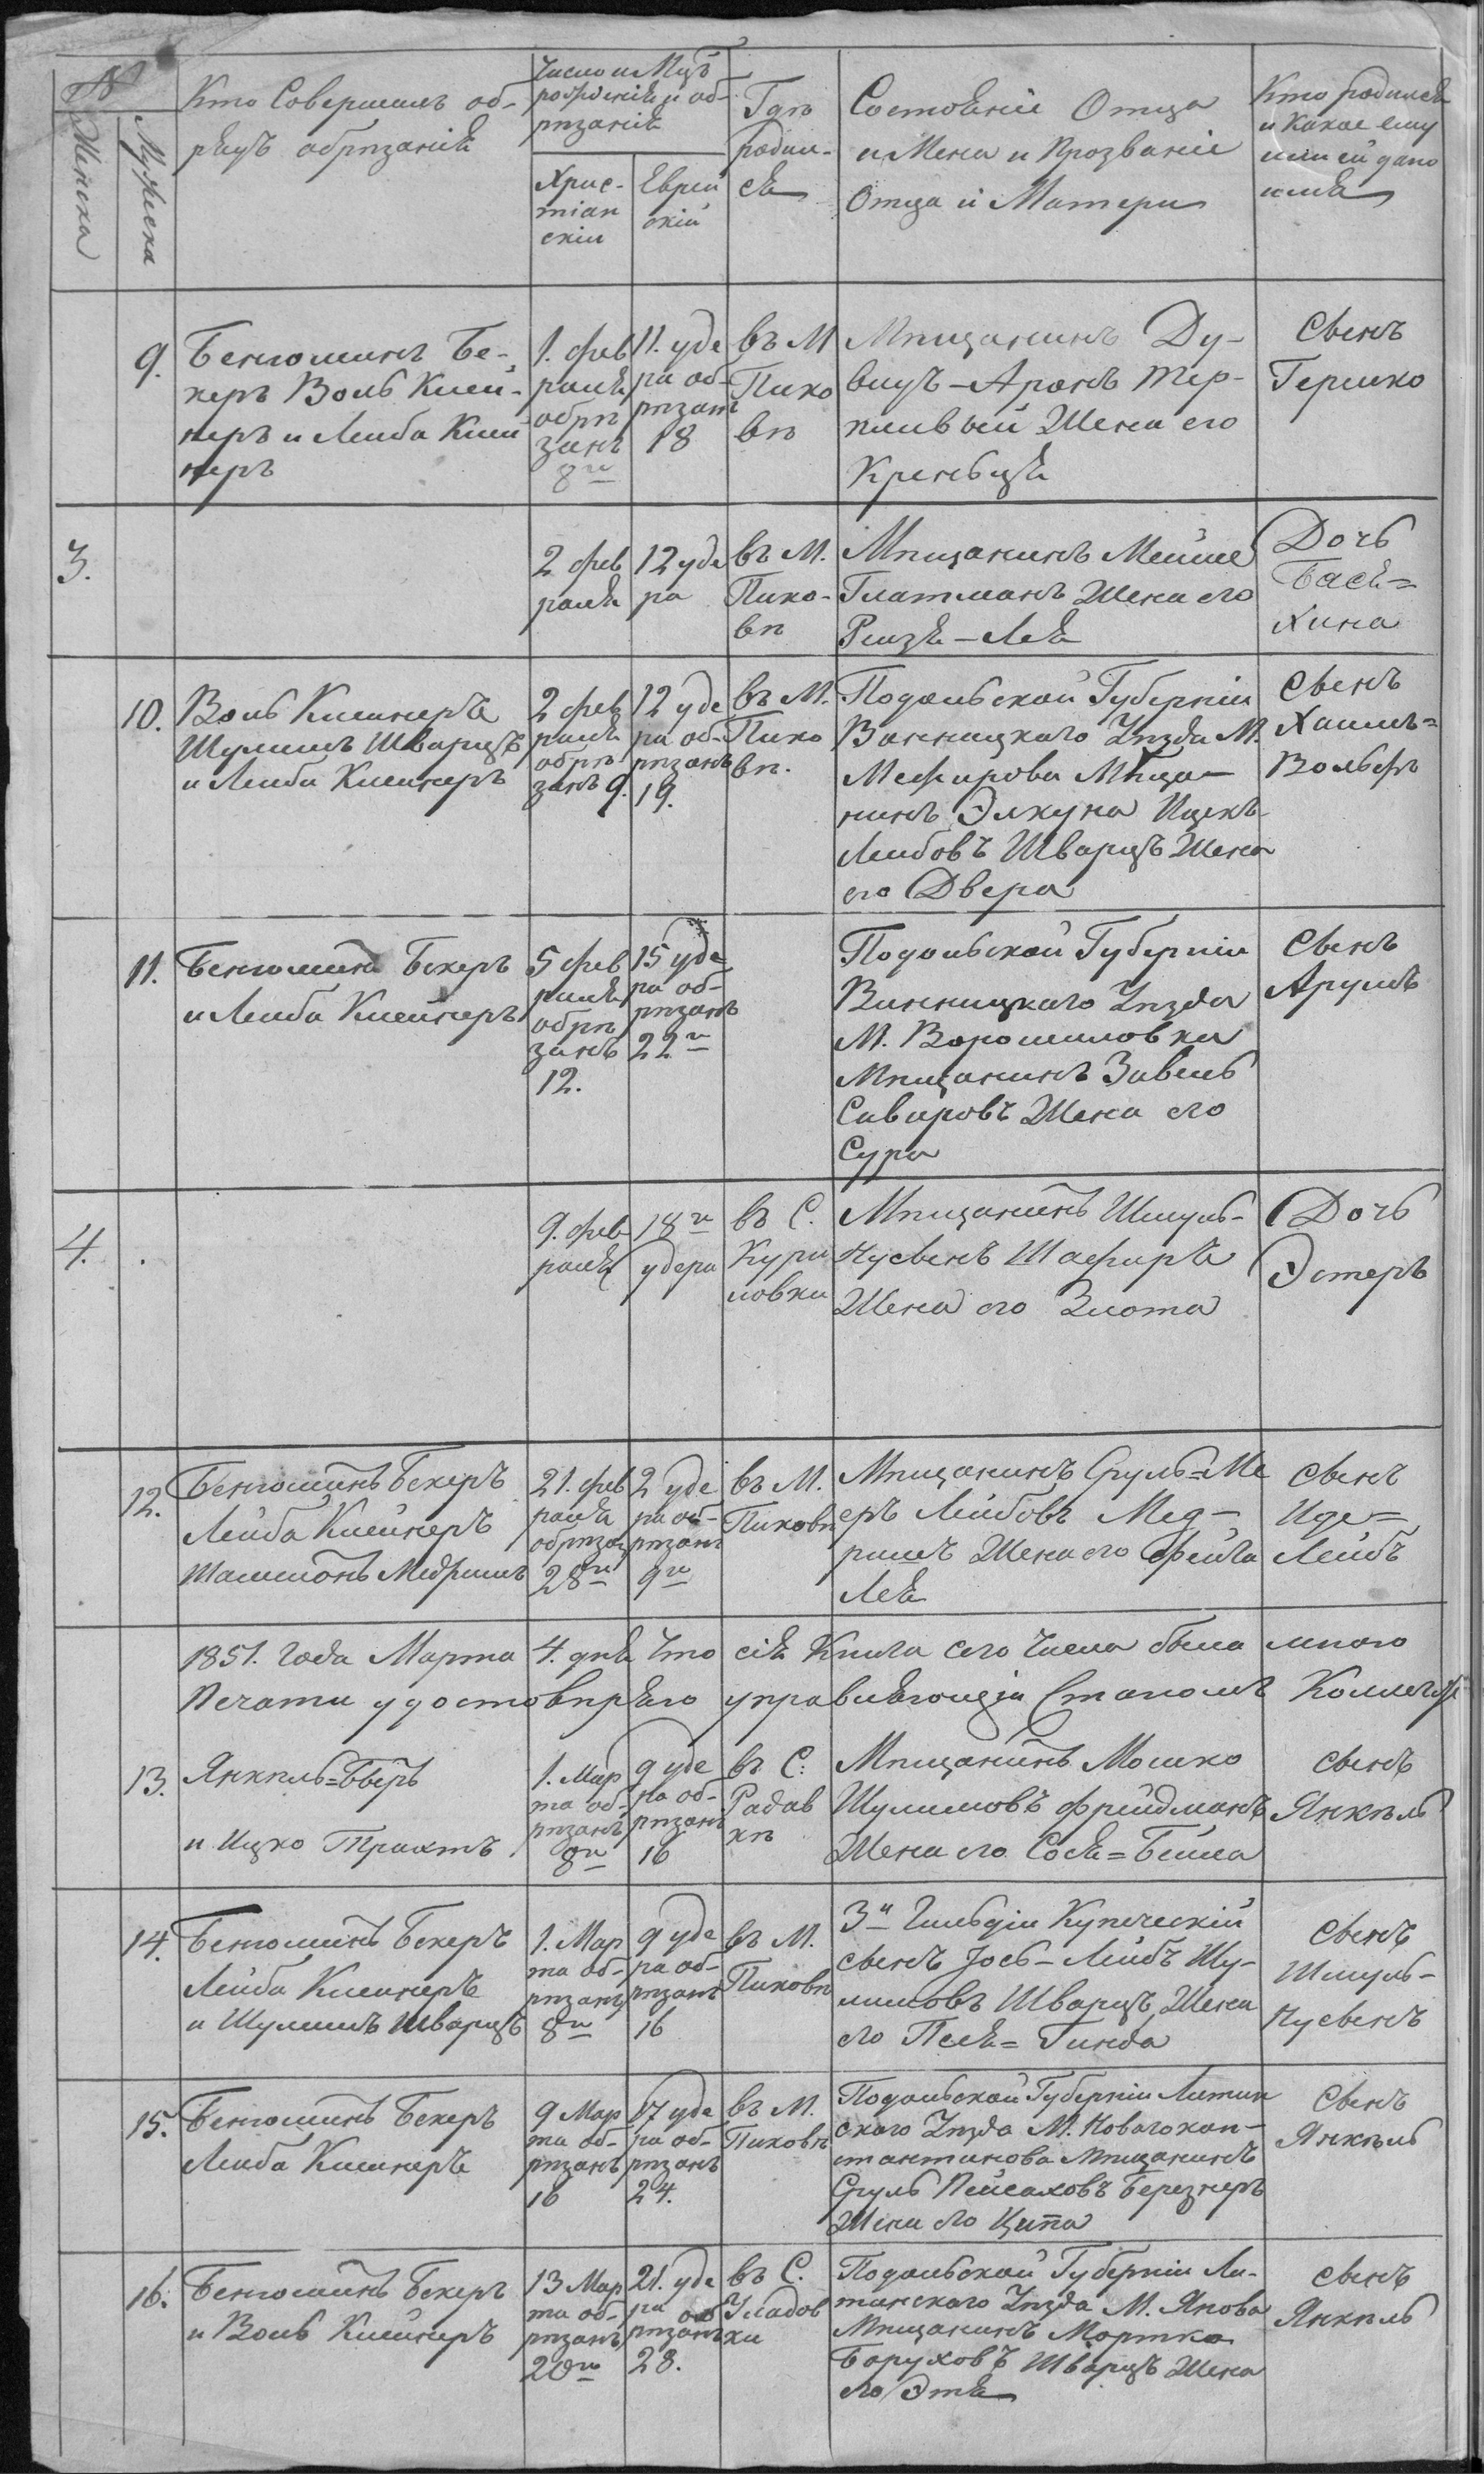 №
Женска
Мужеска
Кто Совершилъ об-
рядъ обрѣзанія
Число и Мцъ
рожденія и об-
рѣзанія
Хрис-
тіан
скій
Еврей
скій
Гдѣ
родил-
ся
Состоѣніе Отца
и Мена и Прозваніе
Отца и Матери
Кто родился
и Какое ему
или ей дано
имя
9.
Бенюминъ Бе-
керъ Воль Клей-
неръ и Лейба Клей
неръ
1. фев
раля
обрѣ
занъ
8го
11. уде
ра об-
рѣзанъ
18
въ М
Пико
вѣ
Мѣщанинъ Ду-
видъ-Аронъ Тер-
пливый Жена его
Креньця
Сынъ
Гершко
3.
2 фев
раля
12 уде
ра
въ М.
Пико-
вѣ
Мѣщанинъ Мейше
Глатманъ Жена его
Рейзя-Лея
Дочь
Бася=
Хина
10.
Воль Клейнеръ
Шулимъ Шварцъ
и Лейба Клейнеръ
2 фев
раля
обрѣ
занъ 9.
12 уде
ра об-
рѣзанъ
19.
въ М.
Пико
вѣ.
Подольской Губерніи
Винницкаго Уѣзда М.
Межирова Мѣща-
нинъ Элкуна Ицекъ-
Лейбовъ Шварцъ Жена
его Двера
Сынъ
Хаимъ=
Вольфъ
11.
Бенюминъ Бекеръ
и Лейба Клейнеръ
5 фев
раля
обрѣ
занъ
12.
15 уде
ра об-
рѣзанъ
22го
Подольской Губерніи
Винницкаго Уѣзда
М. Ворошиловки
Мѣщанинъ Завель
Сивировъ Жена его
Сура
Сынъ
Арумъ
4.
9. фев
раля
18го
удера
въ С.
Кури
ловки
Мѣщанинъ Шмуль-
Нусынъ Шафиръ
Жена его Злота
Дочь
Эстеръ
12.
Бенюминъ Бекеръ
Лейба Клейнеръ
Шамшонъ Медришъ
21. фев
раля
обрѣзан
28го
2 уде
ра об-
рѣзанъ
9го
въ М.
Пиковѣ
Мѣщанинъ Сруль=Ме
еръ Лейбовъ Мед-
ришъ Жена его Фейга
Лея
Сынъ
Иде=
Лейбъ
1851. года Марта 4. дня Что сія Книга сего Числа была много
Печати удостовѣряю управляющій Станомъ
13.
Янкѣль=Беръ
и Ицко Трахтъ
1. Мар
та об-
рѣзанъ
8го
9 уде
ра об-
рѣзанъ
16
въ С:
Радав
кѣ
Мѣщанинъ Мошко
Шулимовъ Фрейдманъ
Жена его Сося=Бейла
Сынъ
Янкѣль
14.
Бенюминъ Бекеръ
Лейба Клейнеръ
и Шулимъ Шварцъ
1. Мар
та об-
рѣзанъ
8го
9 уде
ра об-
рѣзанъ
16
въ М.
Пиковѣ
3й Гильдіи Купеческій
сынъ Іось-Лейбъ Шу-
лимовъ Шварцъ, Жена
его Песя=Гинда
Сынъ
Шмуль-
Нусынъ
15.
Бенюминъ Бекеръ
Лейба Клейнеръ
9 Мар
та об-
рѣзанъ
16
17 уде
ра об-
рѣзанъ
24.
въ М.
Пиковѣ
Подольской Губерніи Литин
скаго Уѣзда М. Новагокон-
стантинова Мѣщанинъ
Сруль Пейсаховъ Березнеръ
Жена его Ципа
Сынъ
Янкѣль
16.
Бенюминъ Бекеръ
и Воль Клейнеръ
13 Мар
та об-
рѣзанъ
20го
21. уде
ра об
рѣзанъ
28.
въ С.
Уладов
ки
Подольской Губерніи Ли-
тинскаго Уѣзда М. Янова
Мѣщанинъ Мортко
Боруховъ Шварцъ Жена
его Этя
Сынъ
Янкѣль